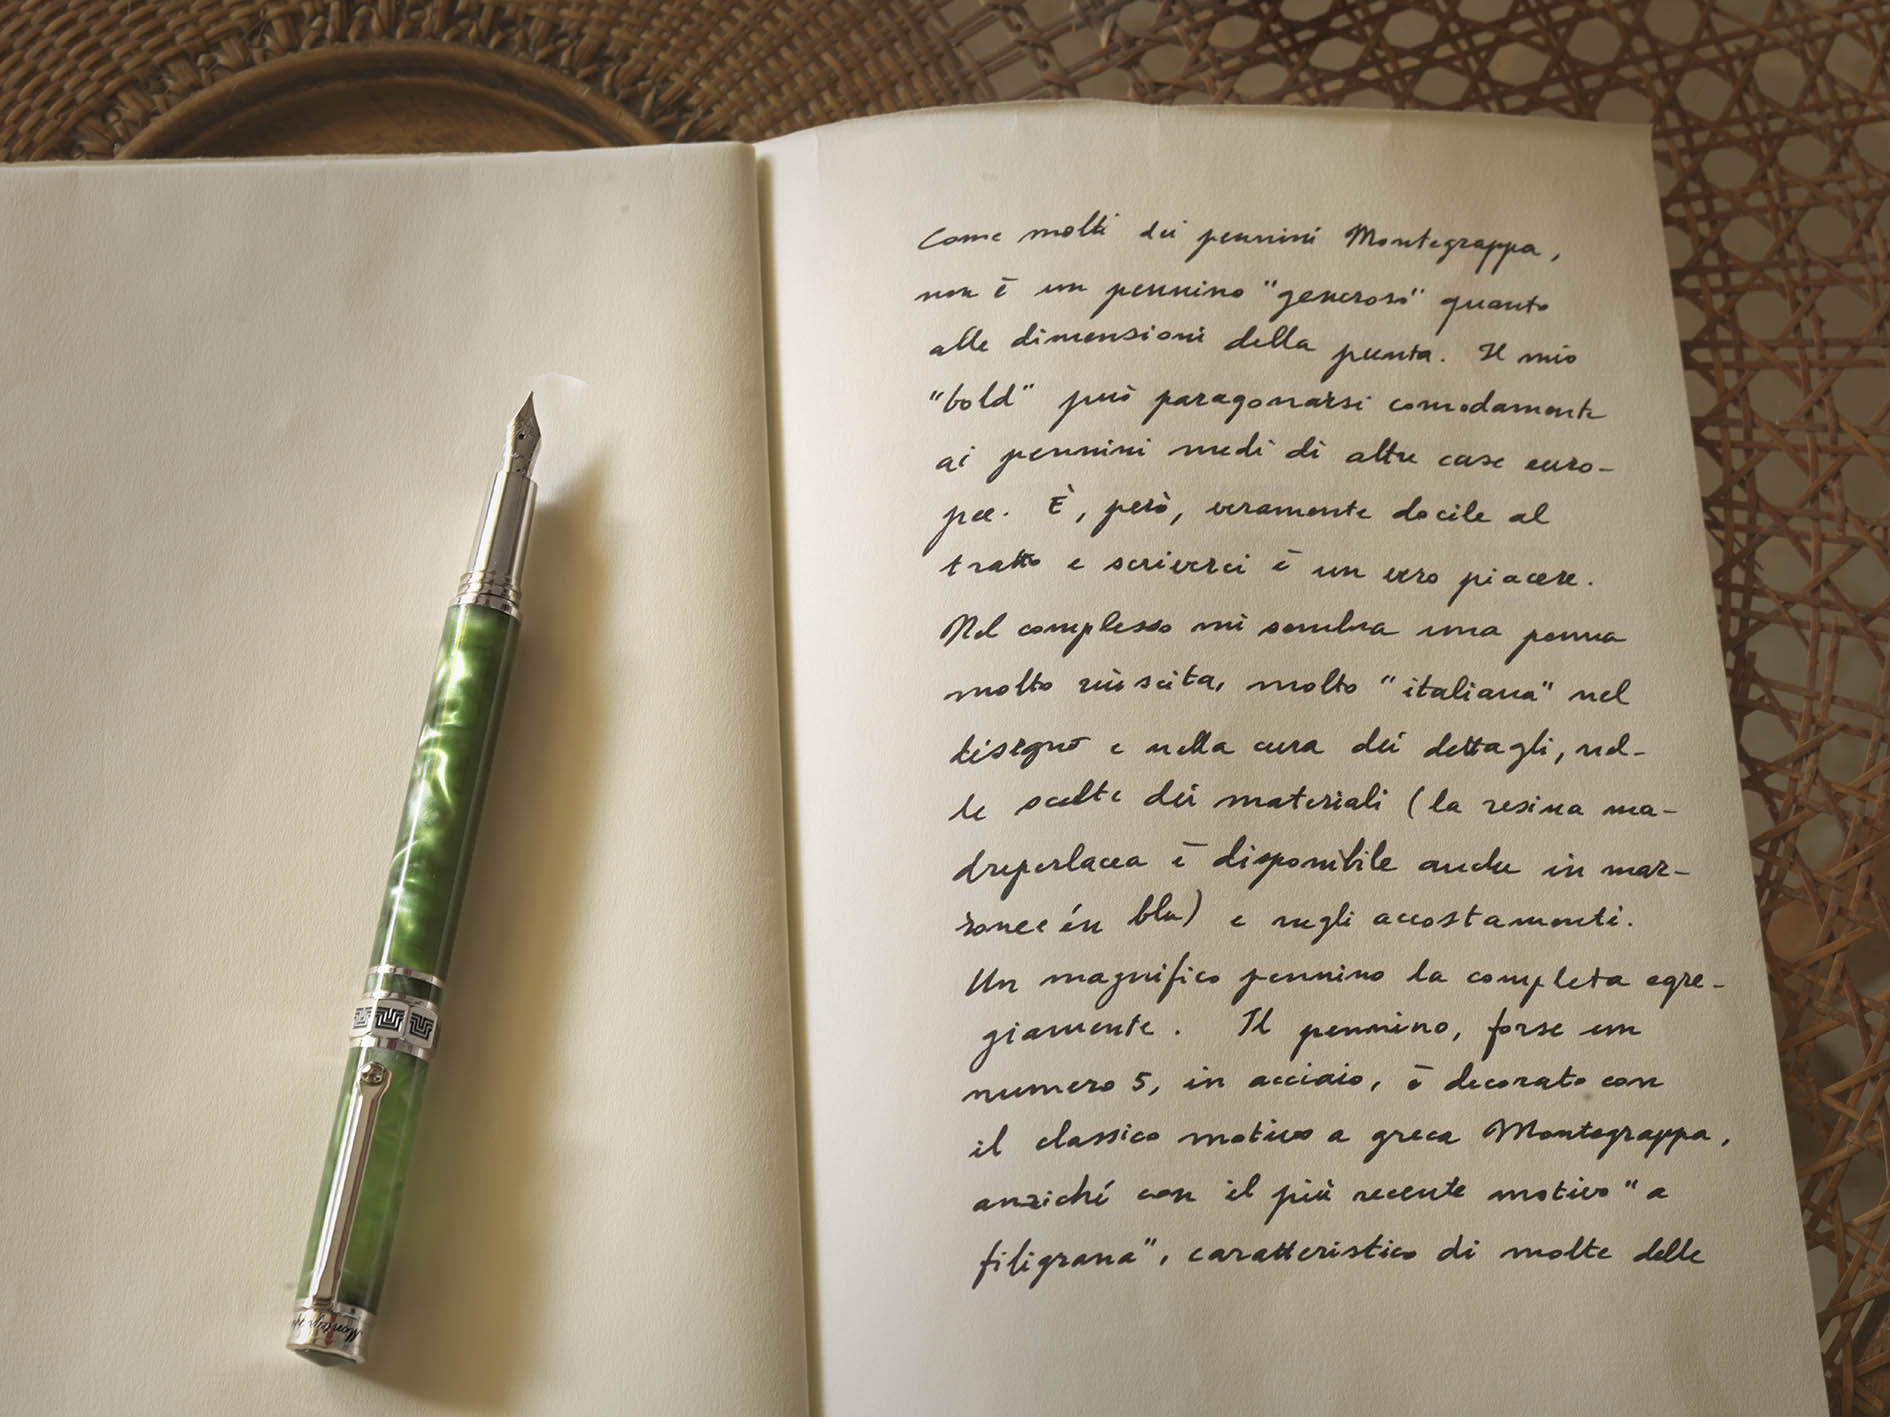 Come molti dei pennini Montegrappa,
non è un pennino "generoso" quanto
alle dimensioni della punta. Il mio
"bold" può paragonarsi comodamente
ai pennini medi di altre case euro-
pee. È, però, veramente docile al
tratto e scriverci è un vero piacere.
Nel complesso mi sembra una penna
molto riuscita, molto "italiana" nel
disegno e nella cura dei dettagli, nel-
le scelte dei materiali (la resina ma-
dreperlacea è disponibile anche in mar-
rone e in blu) e negli accostamenti.
Un magnifico pennino la completa egre-
giamente. Il pennino, forse un
numero 5, in acciaio, è decorato con
il classico motivo a greca Montegrappa,
anziché con il più recente motivo "a
filigrana", caratteristico di molte delle